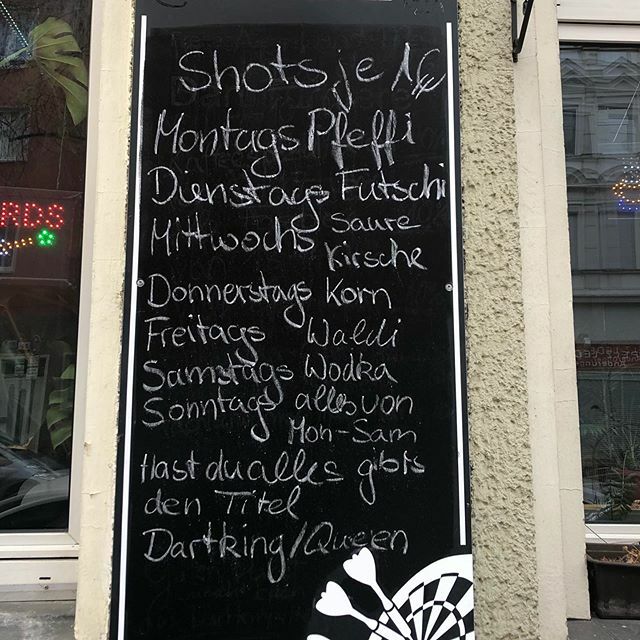 Shots je 1€
Montags Pfeffi
Dienstags Futschi
Mittwochs Saure
Kirsche
Donnerstags Korn
Freitags Waldi
Samstags Wodka
Sonntags alles von
Mon-Sam
Hast du alles gibts
den Titel
Dartking/Queen
RDS